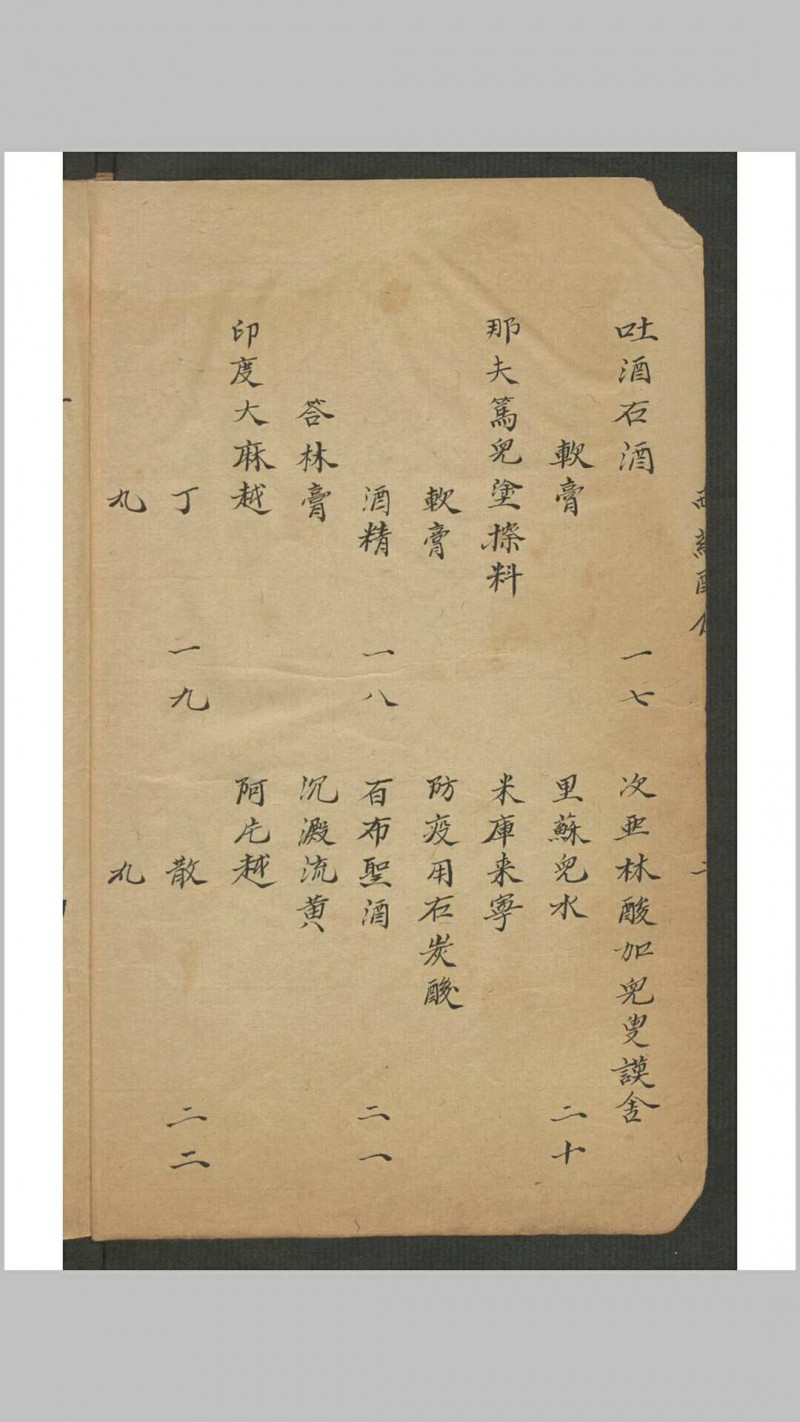 吐酒石酒
軟膏 一七
那夫篤兒塗擦料
軟膏
酒精 一八
答林膏
印度大麻越
丁 一九
丸
次亜林酸加兒叟謨舎
里蘇兒水 二十
米庫来寧
防疫用石炭酸
百布聖酒 二一
沉澱流黄
阿片越
散 二二
丸